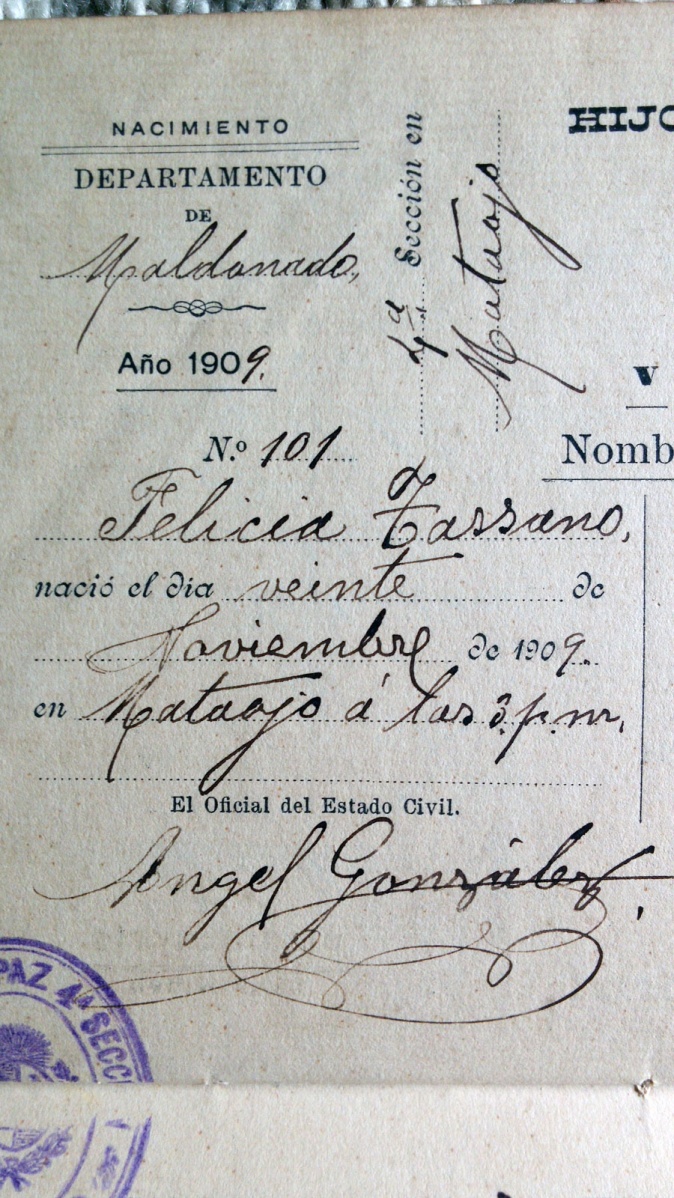 NACIMIENTO
DEPARTAMENTO
DE
Maldonado,
Año 1909.
4ª Sección en
Mataojo
HIJO
V
Nomb
N.º 101
Felicia Tassano,
nació el día veinte de
Noviembre de 1909.
en Mataojo á las 3. p. m.,
El Oficial del Estado Civil.
Angel González,
PAZ 4ª SECCI